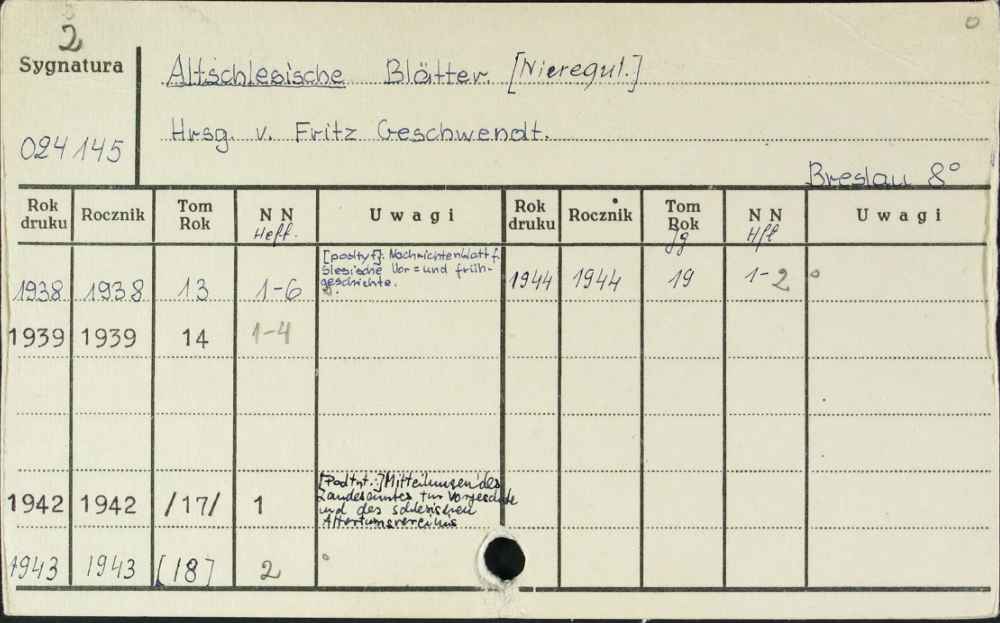 2
Sygnatura
024145
Altschlesische Blätter [Nieregul.]
Hrsg. v. Fritz Geschwendt.
Breslau 8°
Rok druku Rocznik Tom Rok N N Heft. Uwagi Rok druku Rocznik Tom Rok Jg N N Hft Uwagi
1938 1938 13 1-6 [podtyt]: Nachrichtenblatt f. 1944 1944 19 1-2
Slesische Vor= und früh-
geschichte.
1939 1939 14 1-4
1942 1942 /17/ 1 [Podtyt.:] Mitteilungen des
Landesamtes für Vorgeschichte
und des schlesischen
Altertumsvereins
1943 1943 [18] 2